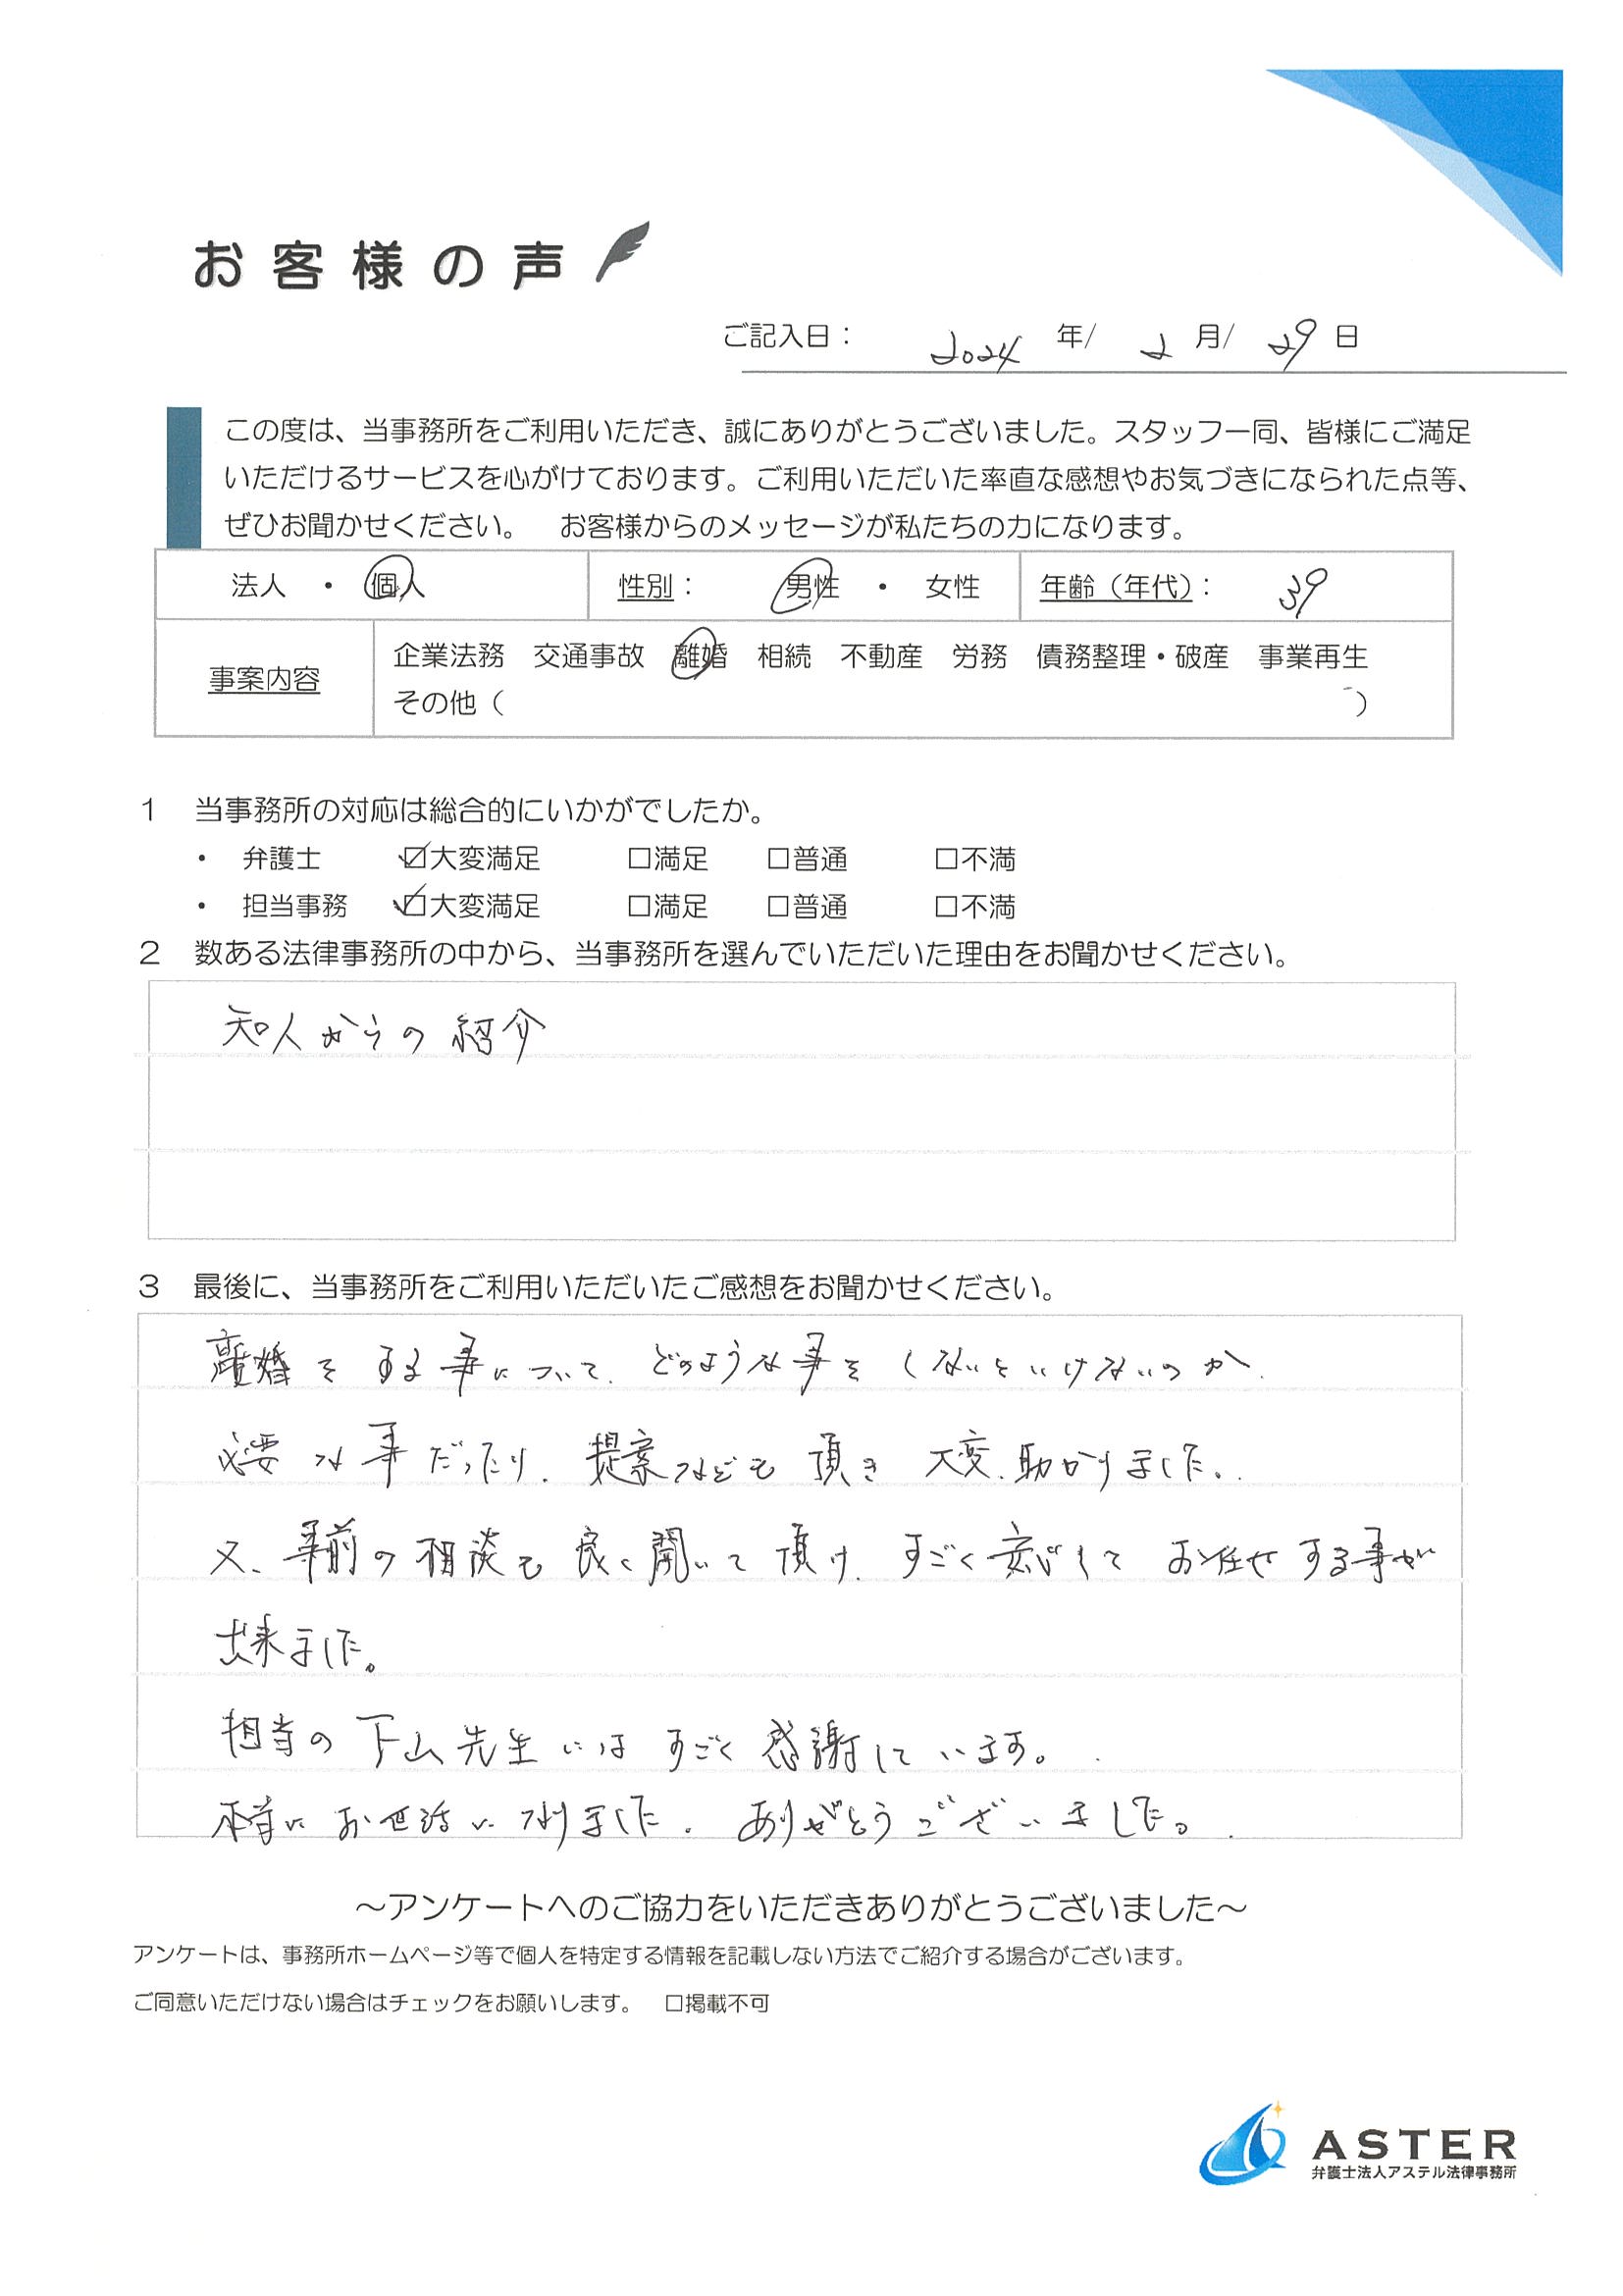 お客様の声
ご記入日： 2024 年/ 2 月/ 29 日
この度は、当事務所をご利用いただき、誠にありがとうございました。スタッフ一同、皆様にご満足
いただけるサービスを心がけております。ご利用いただいた率直な感想やお気づきになられた点等、
ぜひお聞かせください。　お客様からのメッセージが私たちの力になります。
法人 ・ 個人 性別： 男性 ・ 女性 年齢（年代）： 39
事案内容 企業法務 交通事故 離婚 相続 不動産 労務 債務整理・破産 事業再生
その他（ ）
1 当事務所の対応は総合的にいかがでしたか。
・ 弁護士 ☑大変満足 □満足 □普通 □不満
・ 担当事務 ☑大変満足 □満足 □普通 □不満
2 数ある法律事務所の中から、当事務所を選んでいただいた理由をお聞かせください。
知人からの紹介
3 最後に、当事務所をご利用いただいたご感想をお聞かせください。
離婚をする事について、どのような事をしないといけないのか、
必要な事だったり、提案なども頂き大変、助かりました。
又、事前の相談も良く聞いて頂け、すごく安心してお任せする事が
出来ました。
担当の下山先生にはすごく感謝しています。
本当にお世話になりました。ありがとうございました。
～アンケートへのご協力をいただきありがとうございました～
アンケートは、事務所ホームページ等で個人を特定する情報を記載しない方法でご紹介する場合がございます。
ご同意いただけない場合はチェックをお願いします。 □掲載不可
ASTER
弁護士法人アステル法律事務所